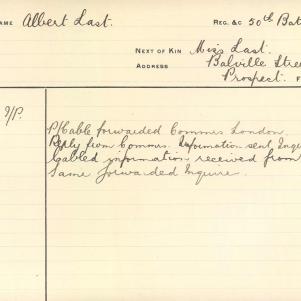 NAME Albert Last. REG. &C 50th Bat
NEXT OF KIN Miss Last.
ADDRESS Balville Stree
Prospect. F
P/Cable forwarded Commrs London.
Reply from Commrs. Information sent, Enqu
Cabled information received from
Same forwarded Enquire.